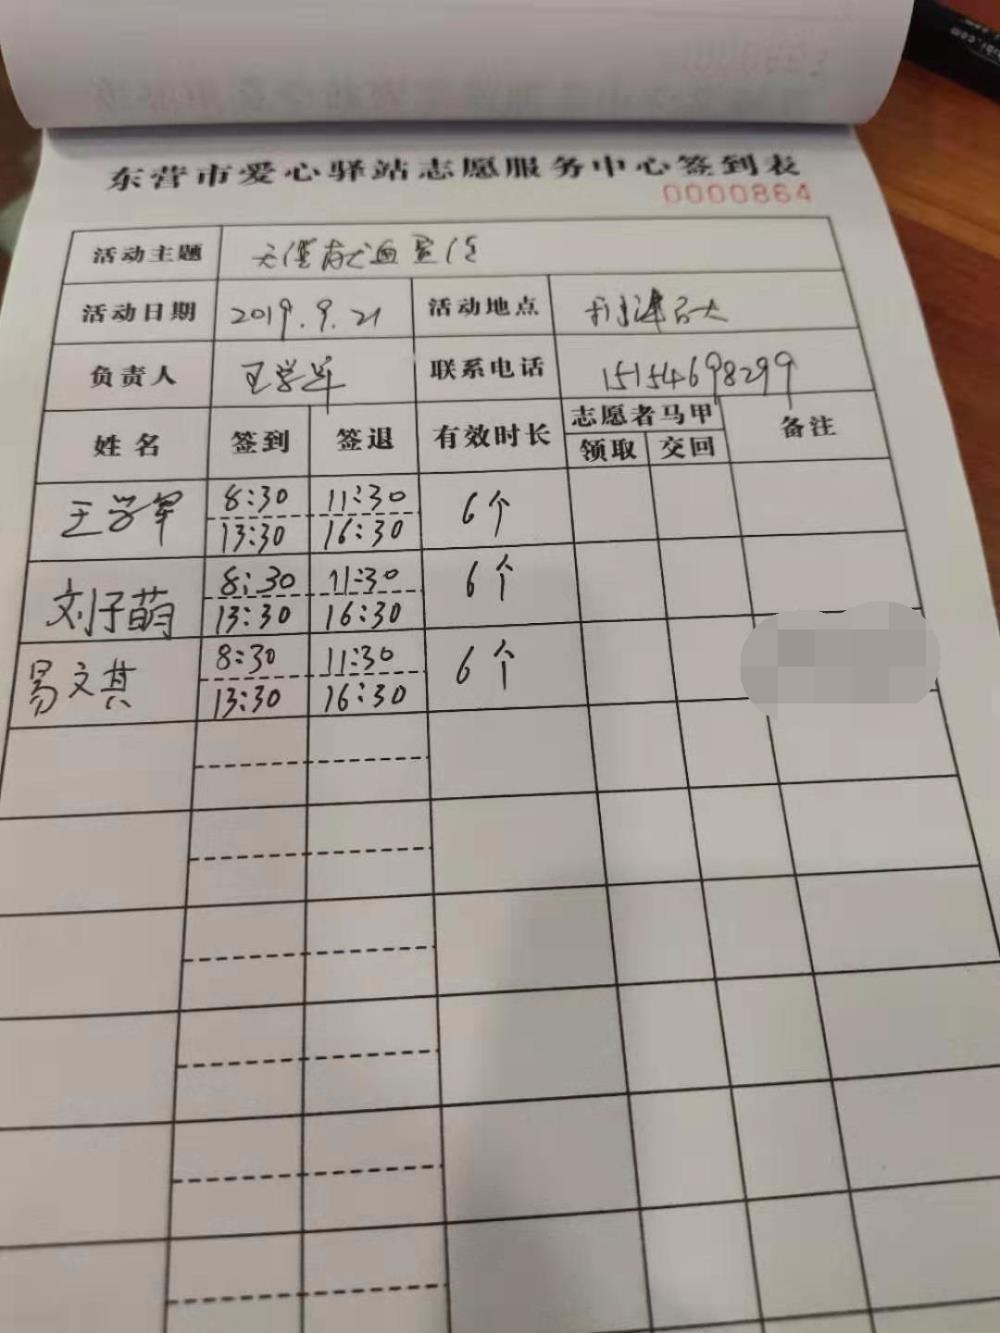 东营市爱心驿站志愿服务中心签到表
0000864
活动主题 无偿献血宣传
活动日期 2019.9.21 活动地点 利津
负责人 王学军 联系电话 15154698299
姓名 签到 签退 有效时长 志愿者马甲 备注
领取 交回
王学军 8:30 11:30 6个
13:30 16:30
刘子萌 8:30 11:30 6个
13:30 16:30
易文其 8:30 11:30 6个
13:30 16:30